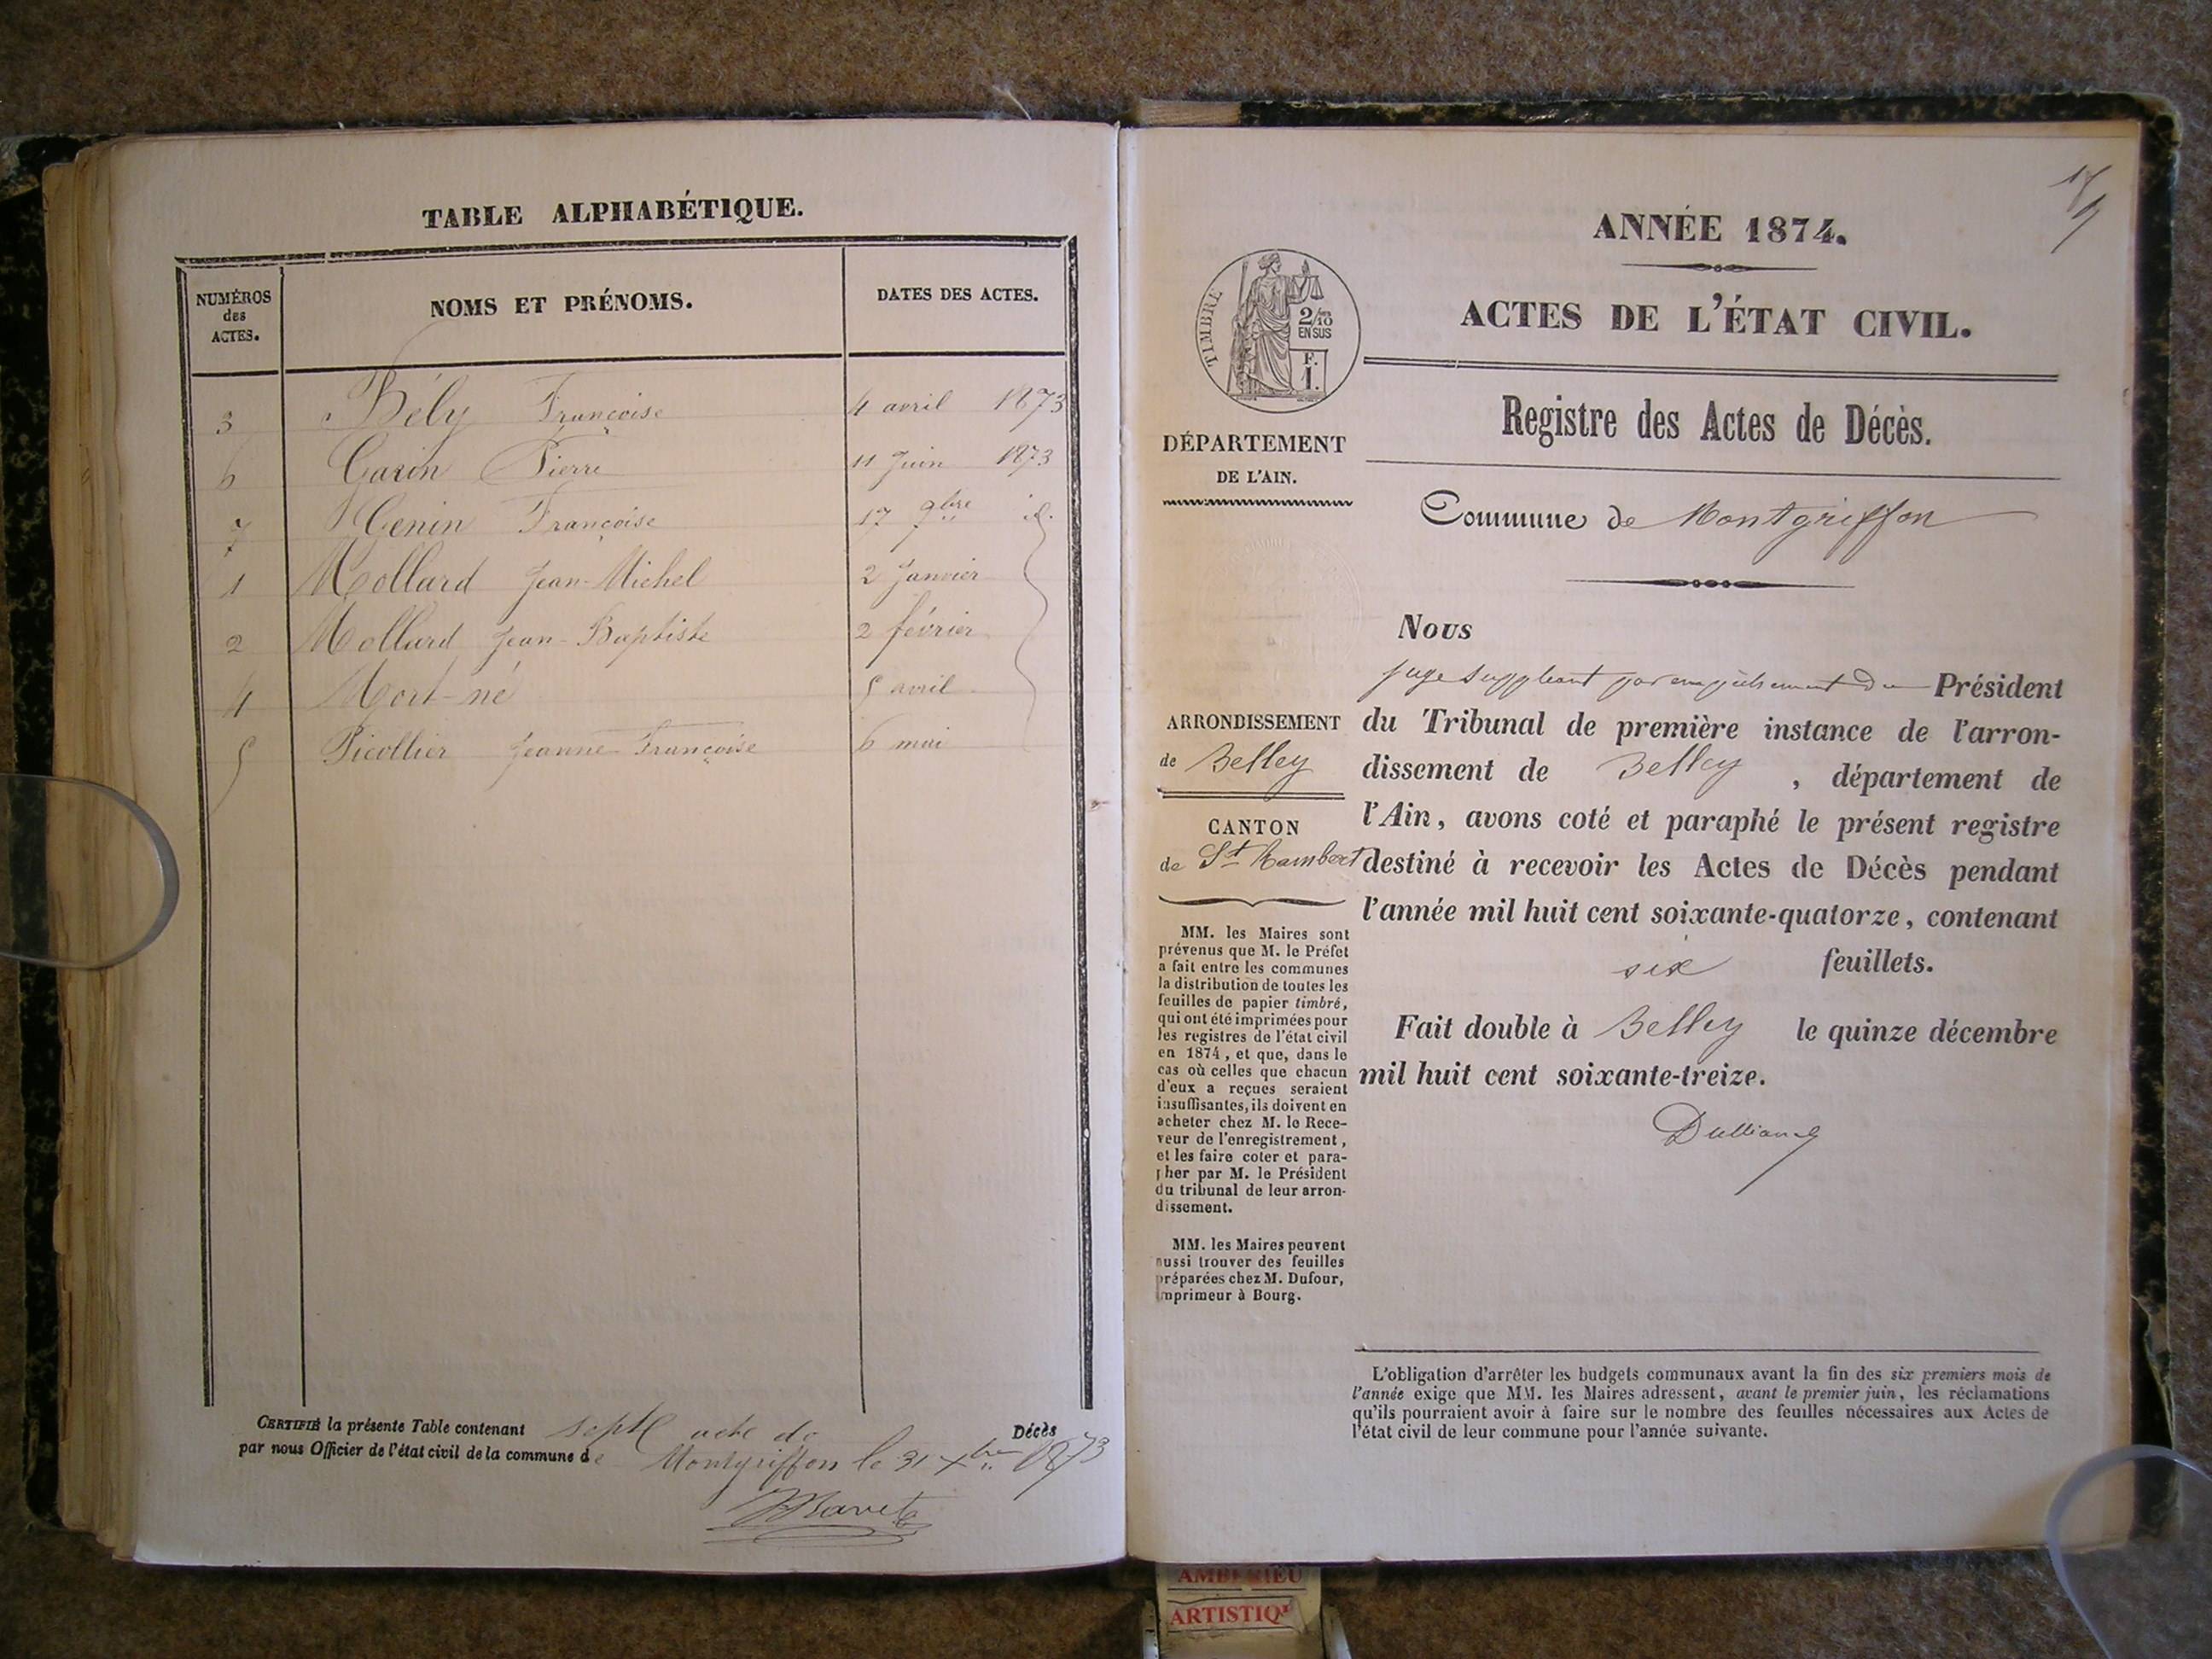 TABLE ALPHABÉTIQUE.
NUMÉROS des ACTES.
NOMS ET PRÉNOMS.
DATES DES ACTES.
3 Bély Françoise 4 avril 1873
6 Garin Pierre 11 Juin 1873
7 Genin Françoise 17 9bre id.
1 Mollard Jean-Michel 2 Janvier
2 Mollard Jean-Baptiste 2 février
4 Mort-né 5 avril
5 Picollier Jeanne-Françoise 6 mai
CERTIFIÉ la présente Table contenant sept acte de Décès
par nous Officier de l'état civil de la commune de Montgriffon le 31 Xbre 1873
ANNÉE 1874.
ACTES DE L'ÉTAT CIVIL.
TIMBRE
2/10 EN SUS
F. 1.
Registre des Actes de Décès.
DÉPARTEMENT
DE L'AIN.
Commune de Montgriffon
Nous
juge suppléant par empêchement du Président
du Tribunal de première instance de l'arron-
dissement de Belley, département de
l'Ain, avons coté et paraphé le présent registre
destiné à recevoir les Actes de Décès pendant
l'année mil huit cent soixante-quatorze, contenant
six feuillets.
Fait double à Belley le quinze décembre
mil huit cent soixante-treize.
ARRONDISSEMENT
de Belley
CANTON
de St Rambert
MM. les Maires sont
prévenus que M. le Préfet
a fait entre les communes
la distribution de toutes les
feuilles de papier timbré,
qui ont été imprimées pour
les registres de l'état civil
en 1874, et que, dans le
cas où celles que chacun
d'eux a reçues seraient
insuffisantes, ils doivent en
acheter chez M. le Rece-
veur de l'enregistrement,
et les faire coter et para-
pher par M. le Président
du tribunal de leur arron-
dissement.
MM. les Maires peuvent
aussi trouver des feuilles
préparées chez M. Dufour,
imprimeur à Bourg.
L'obligation d'arrêter les budgets communaux avant la fin des six premiers mois de
l'année exige que MM. les Maires adressent, avant le premier juin, les réclamations
qu'ils pourraient avoir à faire sur le nombre des feuilles nécessaires aux Actes de
l'état civil de leur commune pour l'année suivante.
AMBERIEU
ARTISTIQU